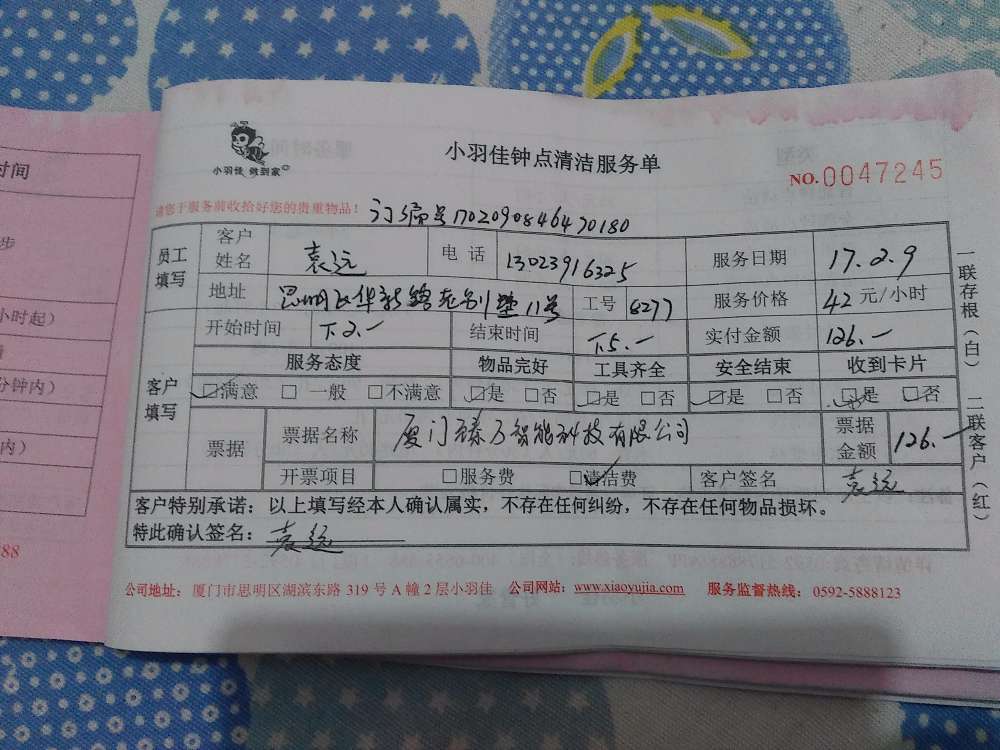 时间
步
小时起）
分钟内）
内）
88
小羽佳 做到家
小羽佳钟点清洁服务单
NO.0047245
请您于服务前收拾好您的贵重物品！
订编号170209084640180
员工填写
客户姓名 袁远 电话 13023916325 服务日期 17.2.9
地址 11号 工号 8277 服务价格 42 元/小时
客户填写
开始时间 下2.- 结束时间 下5.- 实付金额 126.-
服务态度 物品完好 工具齐全 安全结束 收到卡片
☑满意 □ 一般 □不满意 ☑是 □否 ☑是 □否 ☑是 □否 ☑是 □否
票据 票据名称 厦门臻万智能科技有限公司 票据金额 126.-
开票项目 □服务费 ☑清洁费 客户签名 袁远
客户特别承诺：以上填写经本人确认属实，不存在任何纠纷，不存在任何物品损坏。
特此确认签名：袁远
公司地址：厦门市思明区湖滨东路 319 号 A 幢 2 层小羽佳 公司网站：www.xiaoyujia.com 服务监督热线：0592-5888123
一联存根（白） 二联客户（红）